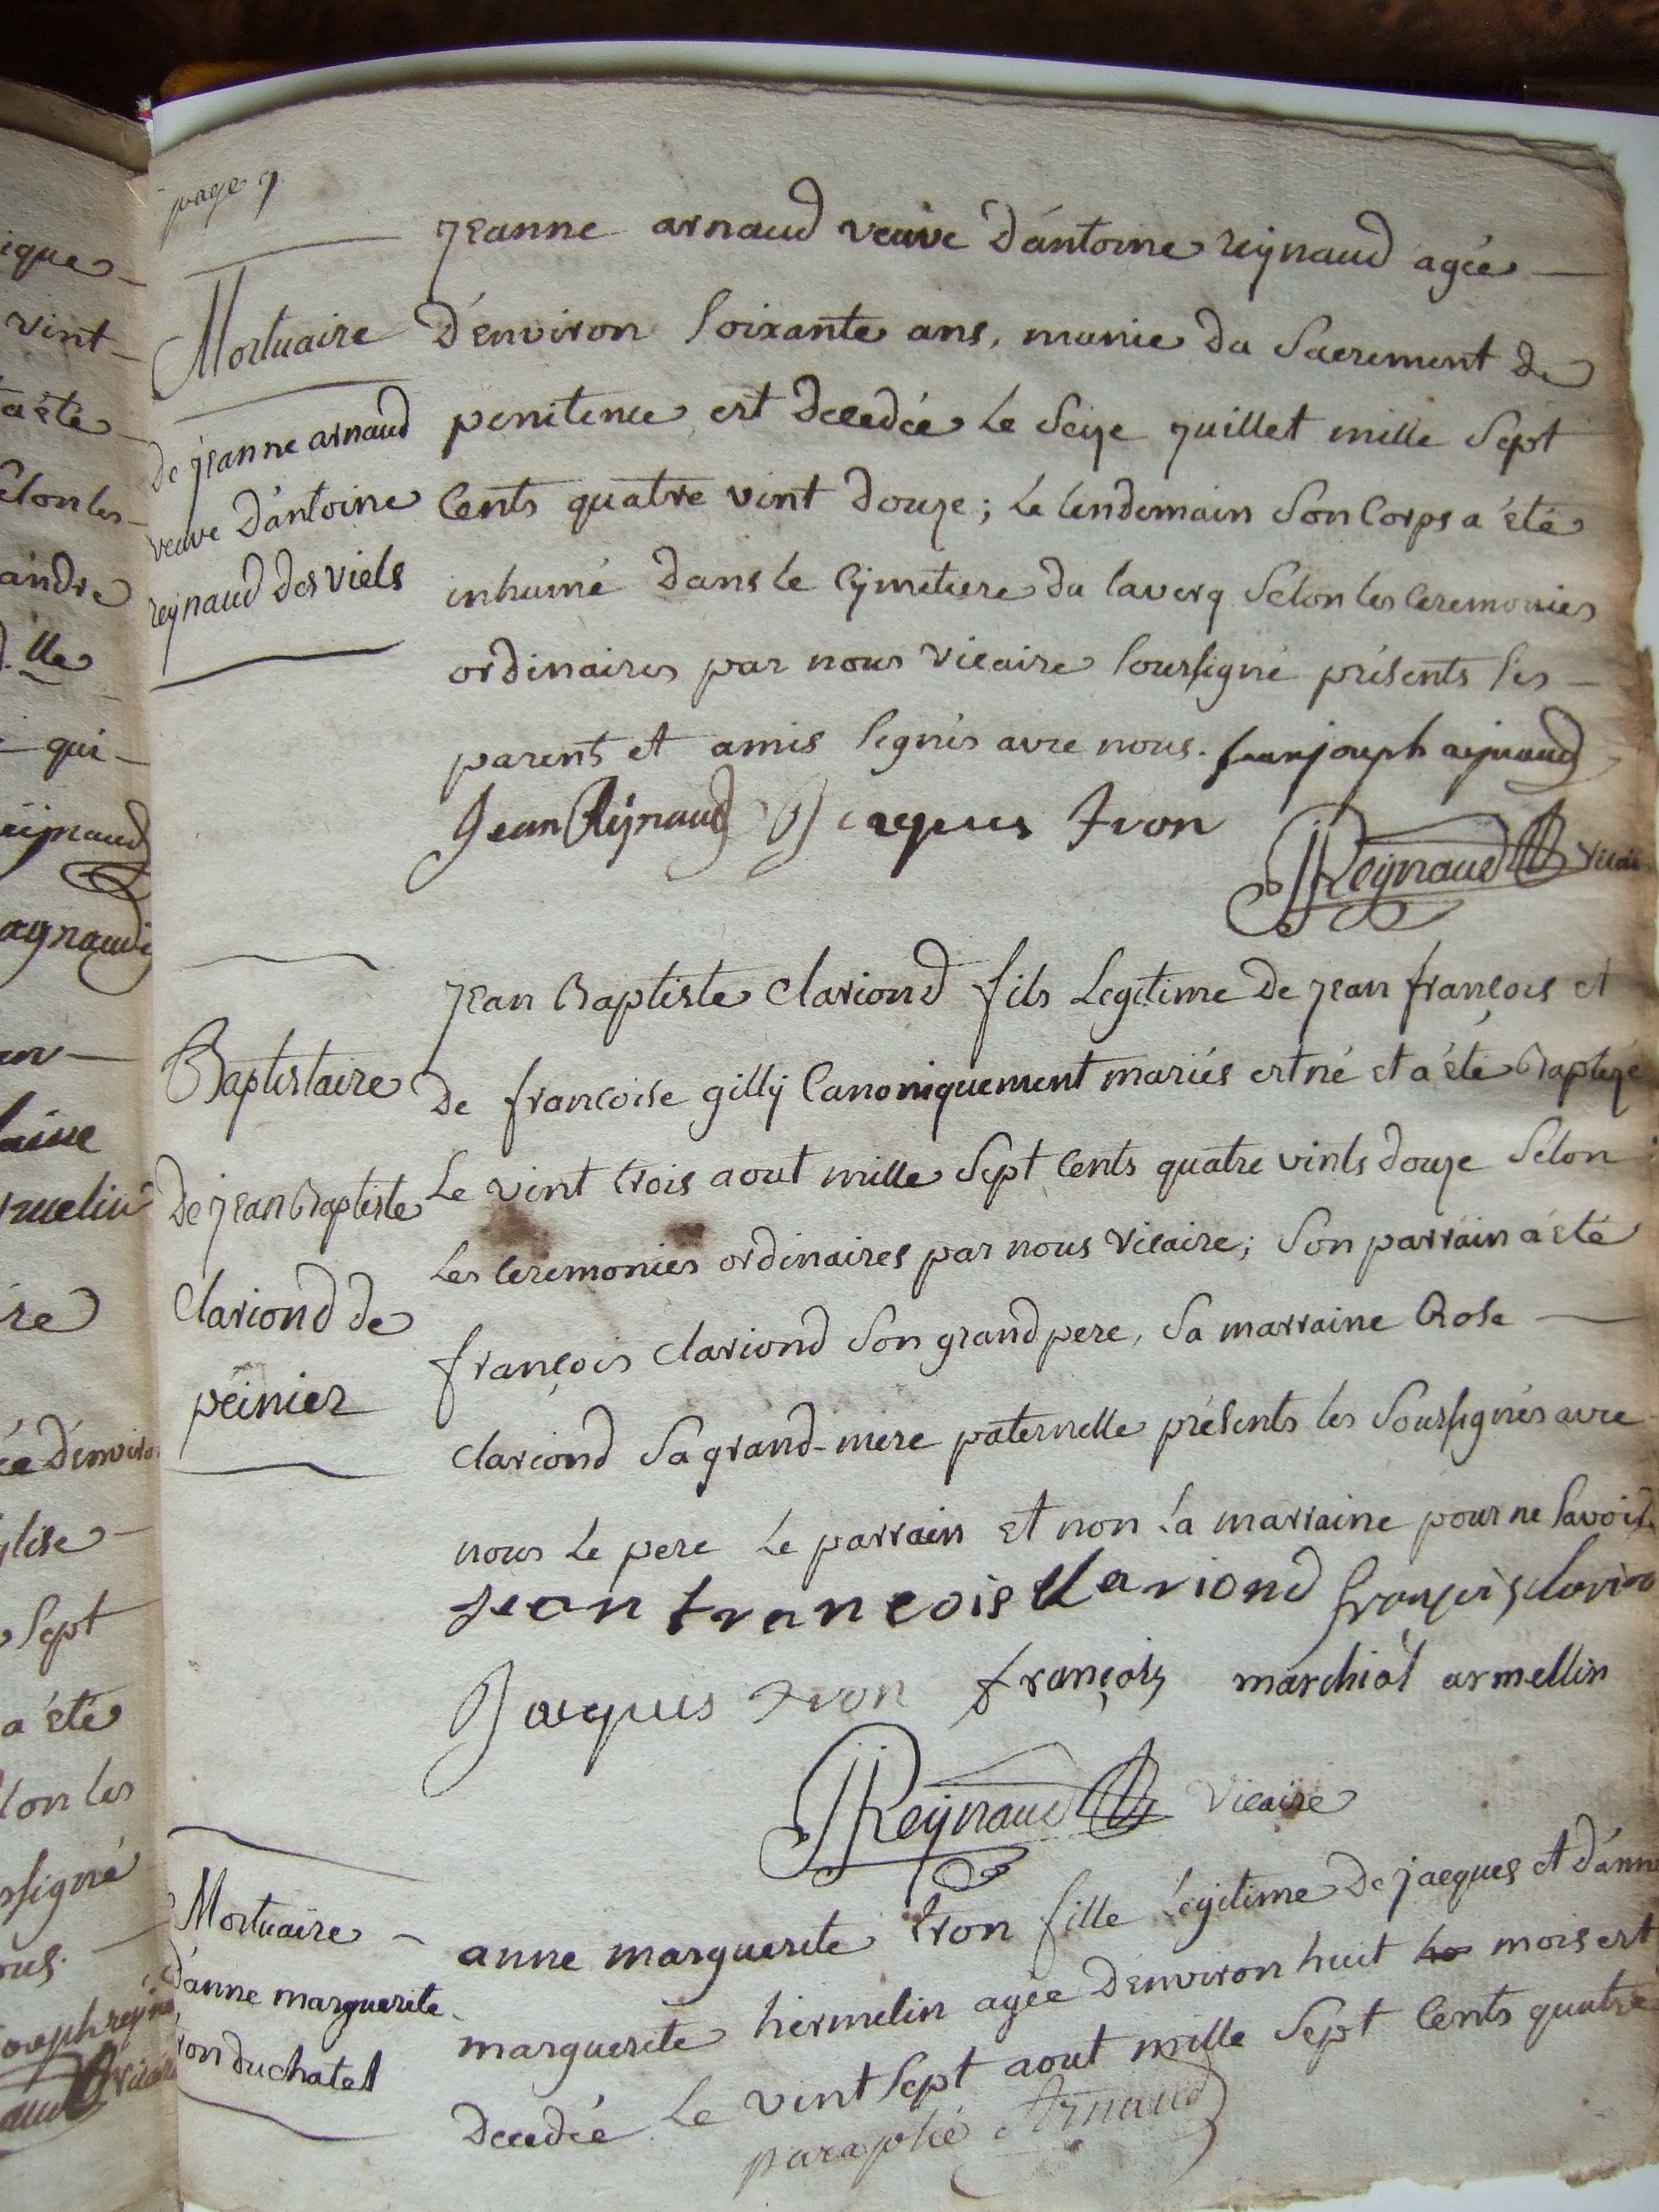 ique
vint
a été
elon les
andre
lle
qui
reijnaud
aynaud
laire
rmelin
re
ée d'enviro
glise
Sept
a été
lon les
ssigné
ous.
page 9
Mortuaire
de jeanne arnaud
veuve d'antoine
reynaud des viels
jeanne arnaud veuve d'antoine reijnaud agée
d'environ soixante ans, munie du Sacrement de
penitence est decedée le Seize juillet mille Sept
Cents quatre vint douze; le lendemain Son Corps a été
inhumé dans le Cijmetiere du laverq Selon les Ceremonies
ordinaires par nous vicaire soussigné présents ses
parents et amis signés avec nous. jean joseph reijnaud
Jean Reijnaud Jacques Tron
JJReijnaud Vicair
Baptistaire
de jean Baptiste
Clariond de
peinier
jean Baptiste Clariond fils Legitime de jean françois et
de francoise gillij Canoniquement mariés est né et a été Baptize
Le vint trois aout mille Sept Cents quatre vints douze Selon
les Ceremonies ordinaires par nous vicaire; Son parrain a été
françois Clariond Son grand pere, Sa marraine Rose
Clariond Sa grand-mere paternelle présents les Soussignés avec
nous le pere le parrain et non la marraine pour ne savoir
jean francois Clariond françois clarion
Jacques Tron françois marchial armellin
JJReijnaud vicaire
Mortuaire
d'anne marguerite
tron du chatel
anne marguerite tron fille Legitime de jacques et d'anne
marguerite hermelin agée d'environ huit ho mois est
decedée le vint Sept aout mille Sept Cents quatre
paraphé Arnaud